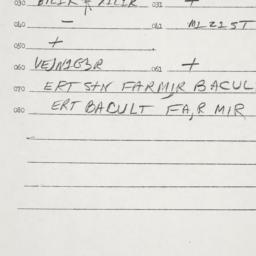 030 031 +
040 – 041 MLZ1ST
050 +
060 VEJN1G3R 061 +
070 ERT STN FARMIR BACUL
080 ERT BACULT FA,R MIR